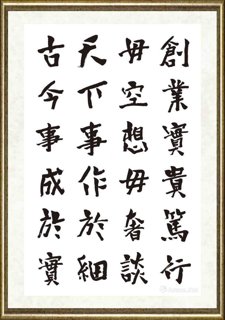 創業實貴篤行
毋空想毋奢談
天下事作於細
古今事成於實